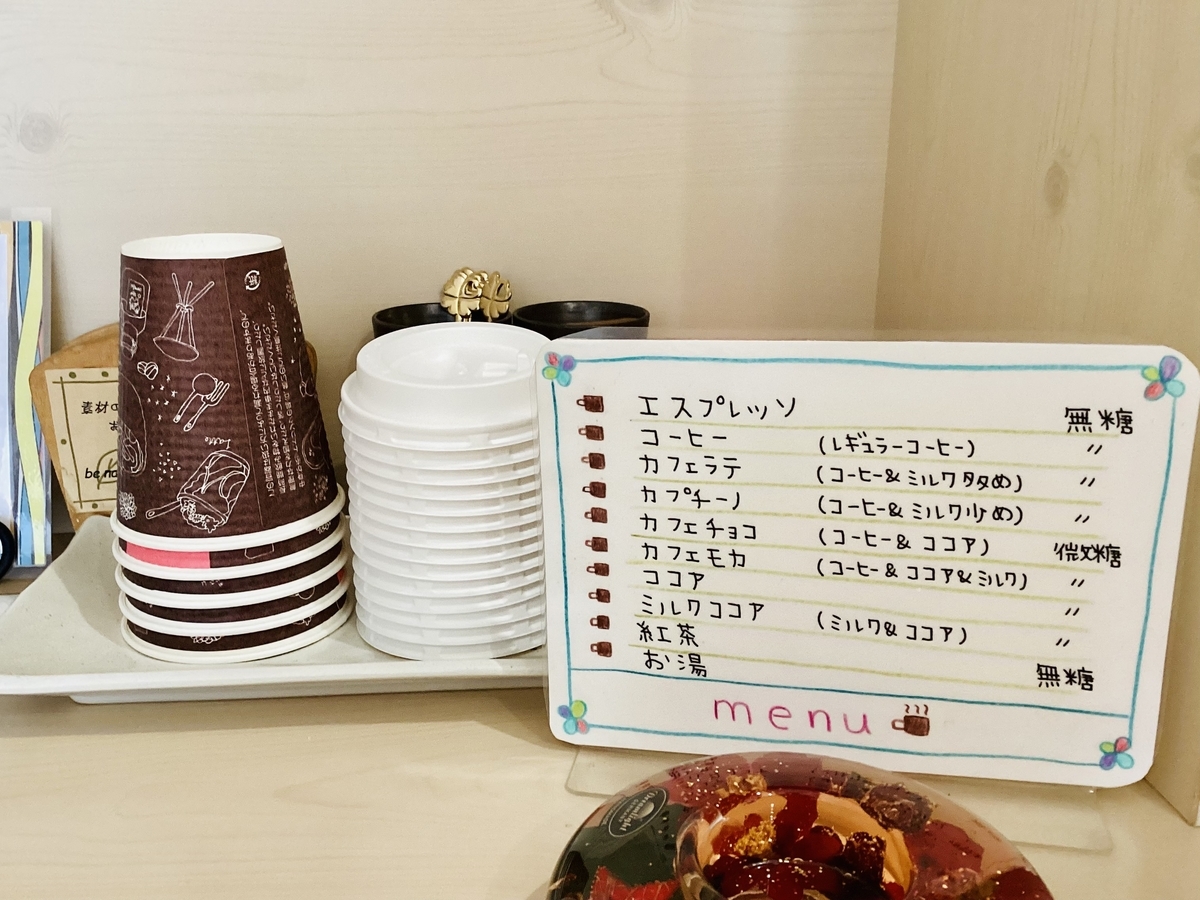 エスプレッソ 無糖
コーヒー (レギュラーコーヒー) 〃
カフェラテ (コーヒー&ミルク多め) 〃
カプチーノ (コーヒー&ミルク少め) 〃
カフェチョコ (コーヒー&ココア) 微糖
カフェモカ (コーヒー&ココア&ミルク) 〃
ココア 〃
ミルクココア (ミルク&ココア) 〃
紅茶 無糖
お湯
menu
素材の
お
be na
Dreamlight